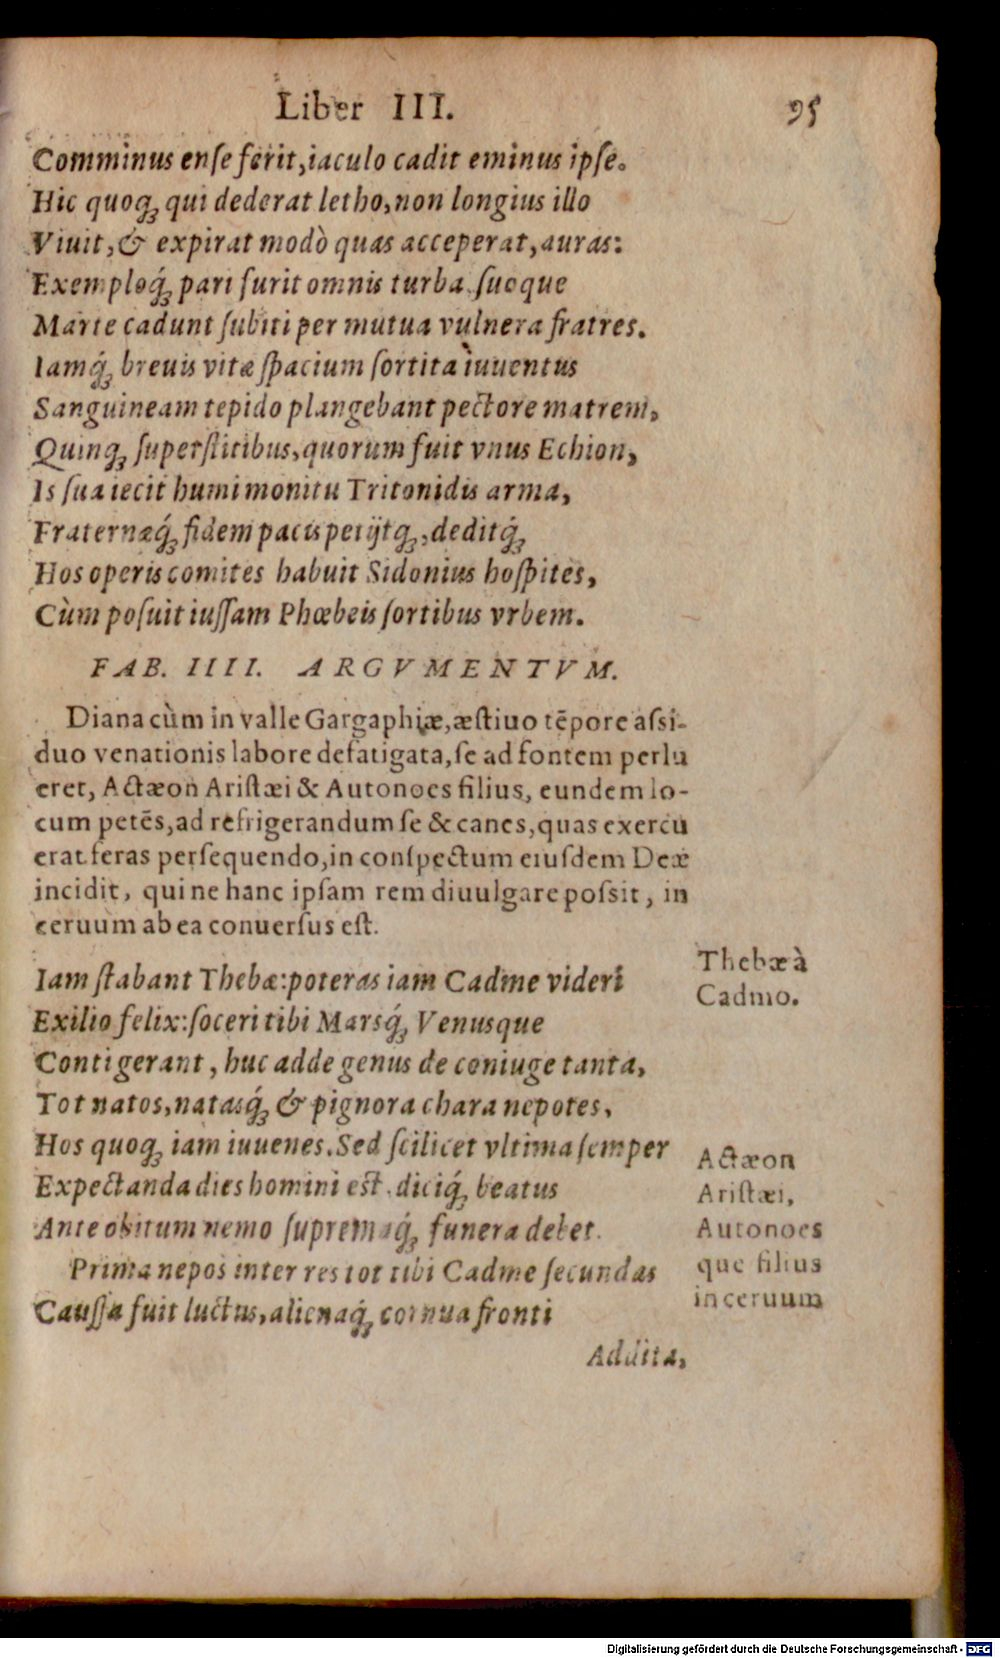 Liber III. 95
Comminus enſe ferit, iaculo cadit eminus ipſe.
Hic quoqꝫ qui dederat letho, non longius illo
Viuit, & expirat modò quas acceperat, auras:
Exemploqꝫ́ pari furit omnis turba ſuoque
Marte cadunt ſubiti per mutua vulnera fratres.
Iamqꝫ́ breuis vitæ ſpacium ſortita iuuentus
Sanguineam tepido plangebant pectore matrem,
Quinqꝫ ſuperſtitibus, quorum fuit vnus Echion,
Is ſua iecit humi monitu Tritonidis arma,
Fraternæqꝫ́ fidem pacis petijtqꝫ, deditqꝫ́
Hos operis comites habuit Sidonius hoſpites,
Cùm poſuit iuſſam Phœbeis ſortibus vrbem.
FAB. IIII. ARGVMENTVM.
Diana cùm in valle Gargaphiæ, æſtiuo tẽpore aſsi-
duo venationis labore defatigata, ſe ad fontem perlu
eret, Actæon Ariſtæi & Autonoes filius, eundem lo-
cum petẽs, ad refrigerandum ſe & canes, quas exercu
erat feras perſequendo, in conſpectum eiuſdem Deæ
incidit, qui ne hanc ipſam rem diuulgare poſsit, in
ceruum ab ea conuerſus eſt.
Iam ſtabant Thebæ: poteras iam Cadme videri
Exilio felix: ſoceri tibi Marsqꝫ́ Venusque
Contigerant, huc adde genus de coniuge tanta,
Tot natos, natasqꝫ́ & pignora chara nepotes,
Hos quoqꝫ iam iuuenes. Sed ſcilicet vltima ſemper
Expectanda dies homini eſt. diciqꝫ́ beatus
Ante obitum nemo ſupremaqꝫ́ funera debet.
Prima nepos inter res tot tibi Cadme ſecundas
Cauſſa fuit luctus, alienaqꝫ́ cornua fronti
Addita,
Thebæ à
Cadmo.
Actæon
Ariſtæi,
Autonoes
que filius
in ceruum
Digitalisierung gefördert durch die Deutsche Forschungsgemeinschaft - DFG